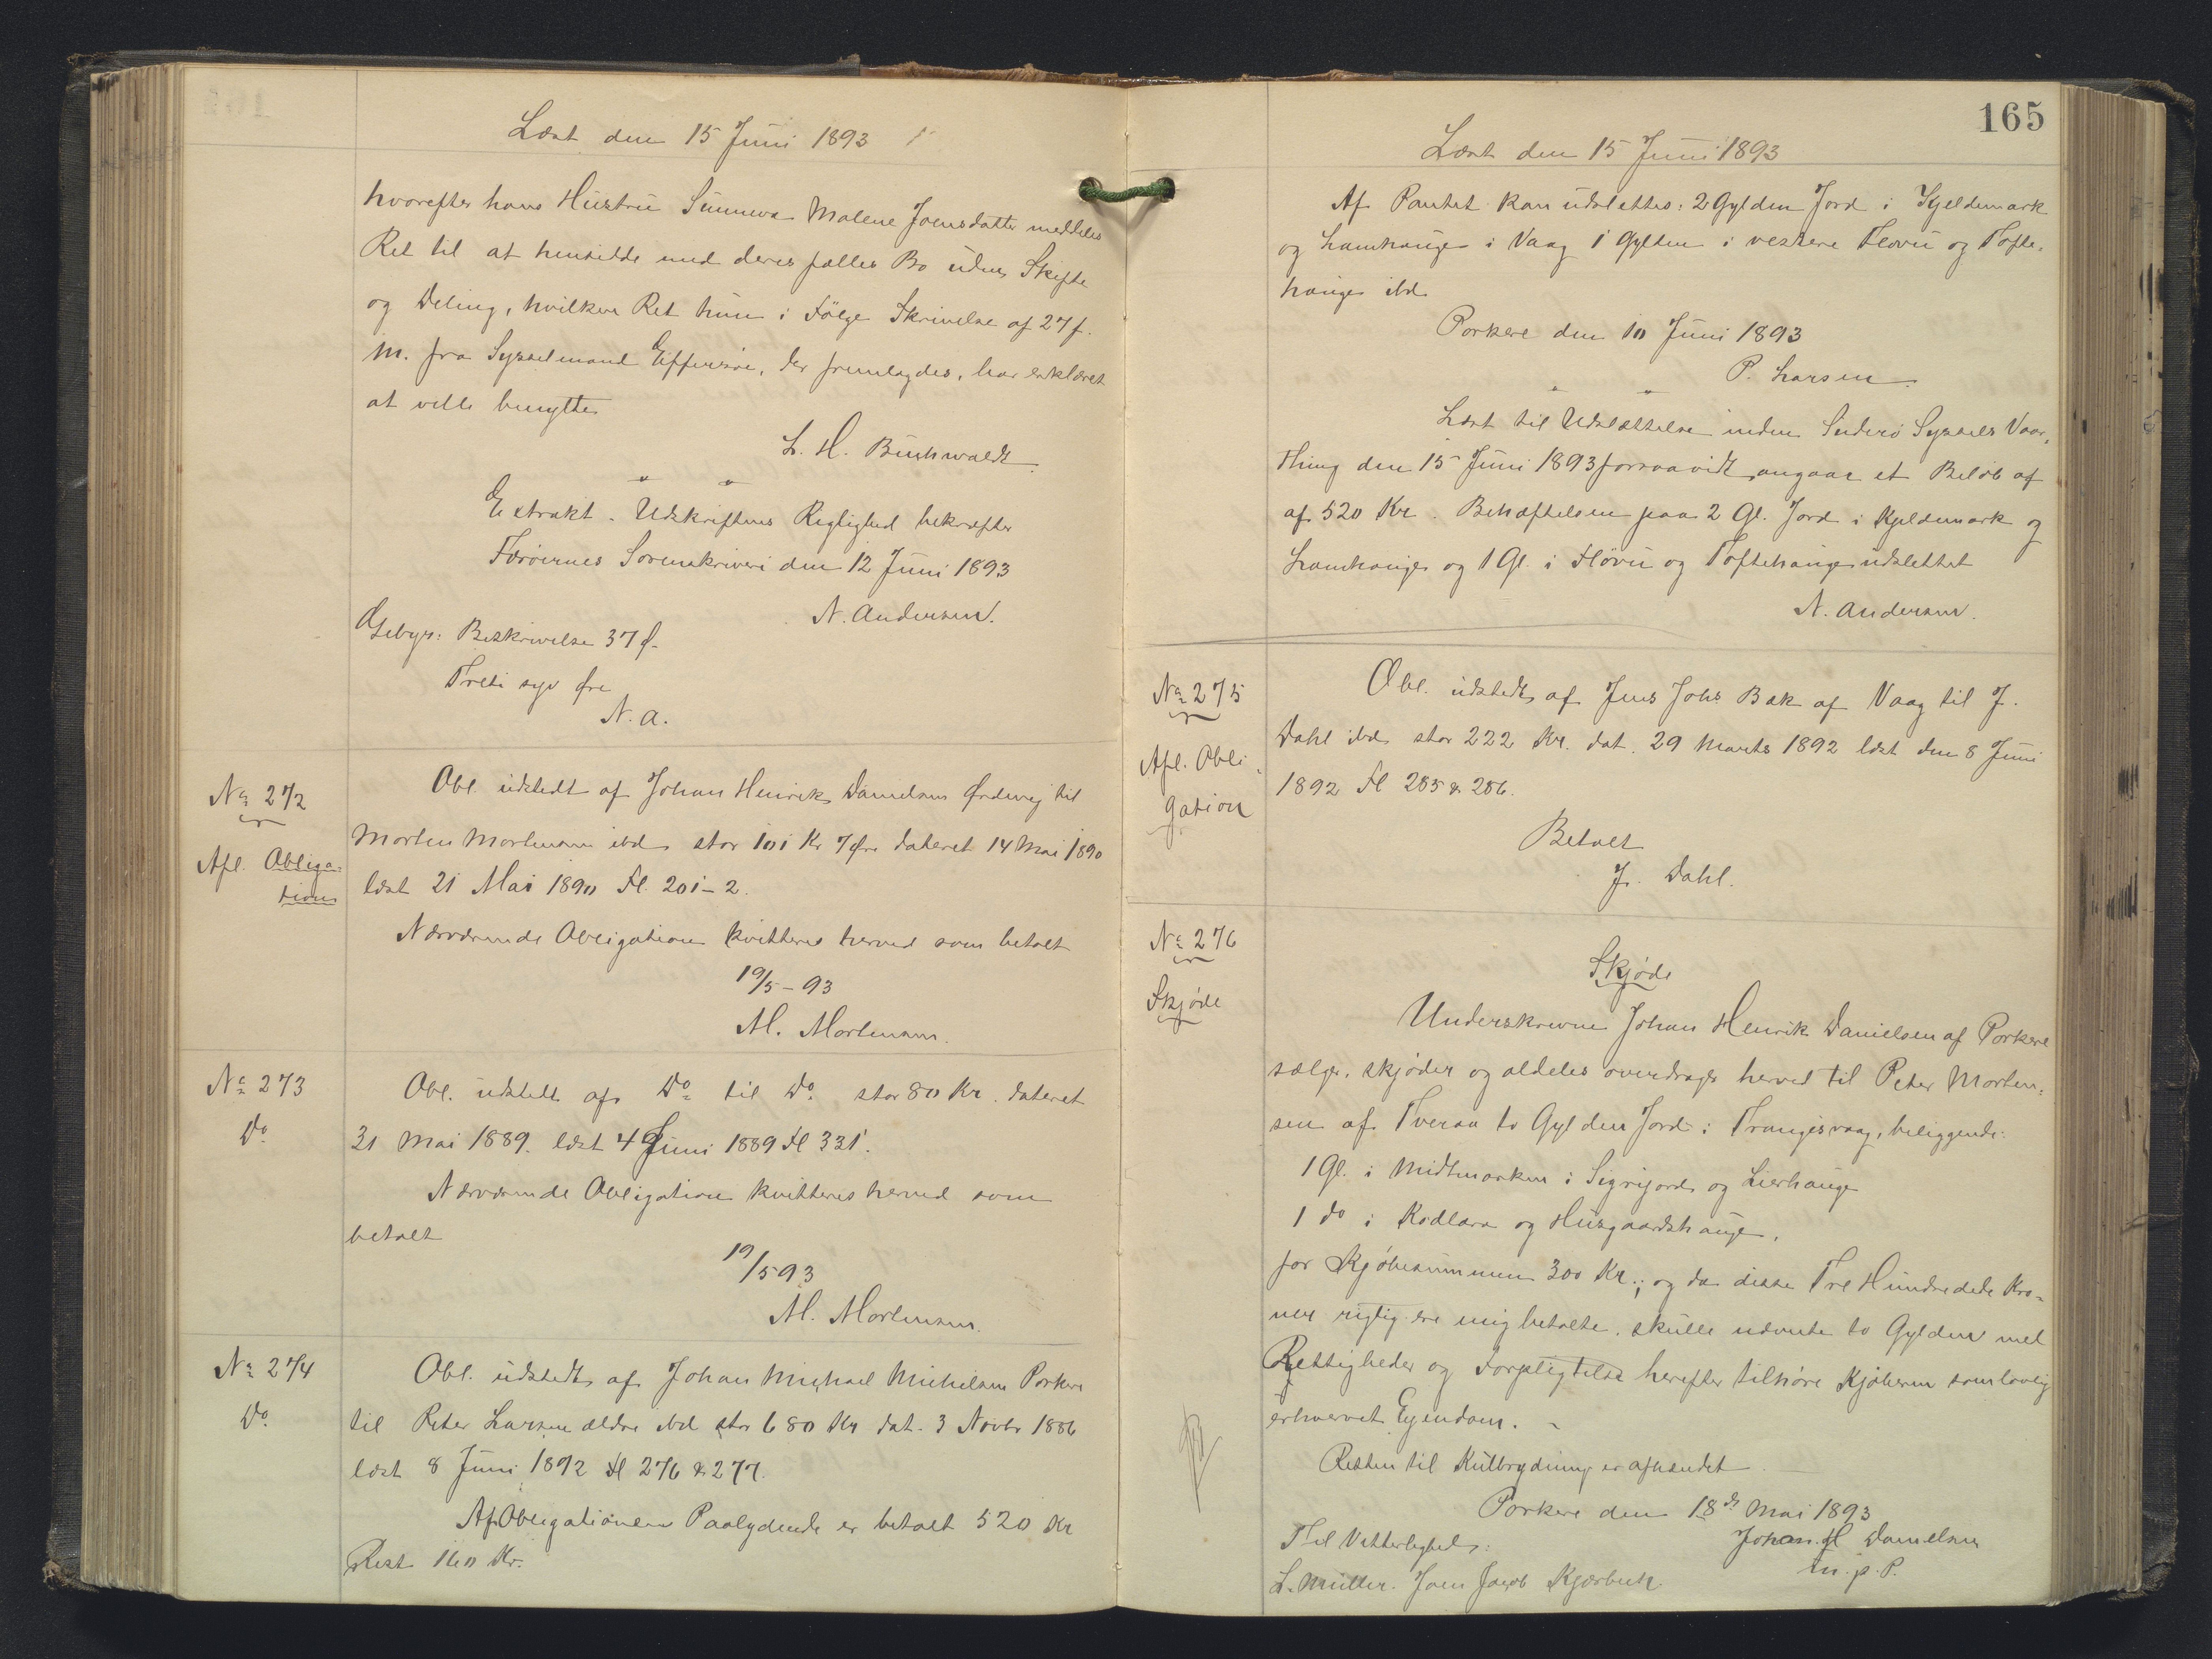 Læst den 15 Juni 1893
hvorefter hans Hustru Sunneva Malene Joensdatter meddeles
Ret til at hensidde med deres fælles Bo uden Skifte
og Deling, hvilken Ret hun i Følge Skrivelse af 27 f.
M. fra Sysselmand Effersøe, der fremlagdes, har erklæret
at ville benytte
L. H. Buchwaldt
" "
Extrakt-Udskriftens Rigtighed bekræfter
Færøernes Sorenskriveri den 12 Juni 1893
N. Andersen.
Gebyr: Beskrivelse 37 Ø.
Treti syv Øre
N. A.
No 272
Afl. Obliga-
tion
Obl. udstedt af Johan Henrik Danielsen Ørdevig til
Morten Mortensen ibd stor 101 Kr 7 Øre dateret 14 Mai 1890
læst 21 Mai 1890 Fl. 201-2.
Nærværende Obligation kvitteres herved som betalt
19/5-93
M. Mortensen.
No 273
Do
Obl. udstedt af Do til Do stor 80 Kr. dateret
31 Mai 1889. læst 4 Juni 1889 Fl 331.
Nærværende Obligation kvitteres herved som
betalt
19/5 93
M. Mortensen.
No 274
Do
Obl. udstedt af Johan Michael Michelsen Porkere
til Peter Larsen ældre ibd stor 680 Kr dat. 3 Novbr 1886
læst 8 Juni 1892 Fl 276 & 277.
Af Obligationens Paalydende er betalt 520 Kr
Rest 160 Kr.
165
Læst den 15 Juni 1893
Af Pantet kan udslettes: 2 Gylden Jord i Kjeldemark
og Lamhauge i Vaag 1 Gylden i vestere Fløvu og Tofte-
hauge ibd
Porkere den 10 Juni 1893
P. Larsen.
" "
Læst til Udslettelse inden Suderø Syssels Vaar-
thing den 15 Juni 1893 forsaavidt angaar et Beløb af
af 520 Kr. Behæftelsen paa 2 Gl. Jord i Kjeldemark og
Lamhauge og 1 Gl. i Fløvu og Toftehauge udslettet
N. Andersen.
No 275
Afl. Obli-
gation
Obl. udstedt af Jens Johs Bak af Vaag til J.
Dahl ibd stor 222 Kr. dat. 29 Marts 1892 læst den 8 Juni
1892 Fl 285 & 286.
Betalt
J. Dahl.
No 276
Skjøde
Skjøde
Underskrevne Johan Henrik Danielsen af Porkere
sælger, skjøder og aldeles overdrager herved til Peter Morten-
sen af Tveraa to Gylden Jord i Trangisvaag, beliggende:
1 Gl. i Midtmarken i Sigrijord og Lierhauge
1 do i Kodlara og Husgaardshauge,
for Kjøbesummen 300 Kr.; og da disse Tre Hundrede Kro-
ner rigtig ere mig betalte, skulle nævnte to Gylden med
Rettigheder og Forpligtelse herefter tilhøre Kjøberen som lovlig
erhvervet Ejendom. -
Retten til Kulbrydning er afhændet
Porkere den 18de Mai 1893
Til Vitterlighed:
Johan. H Danielsen
L. Müller. Joen Jacob Kjærbech.
m. p. P.